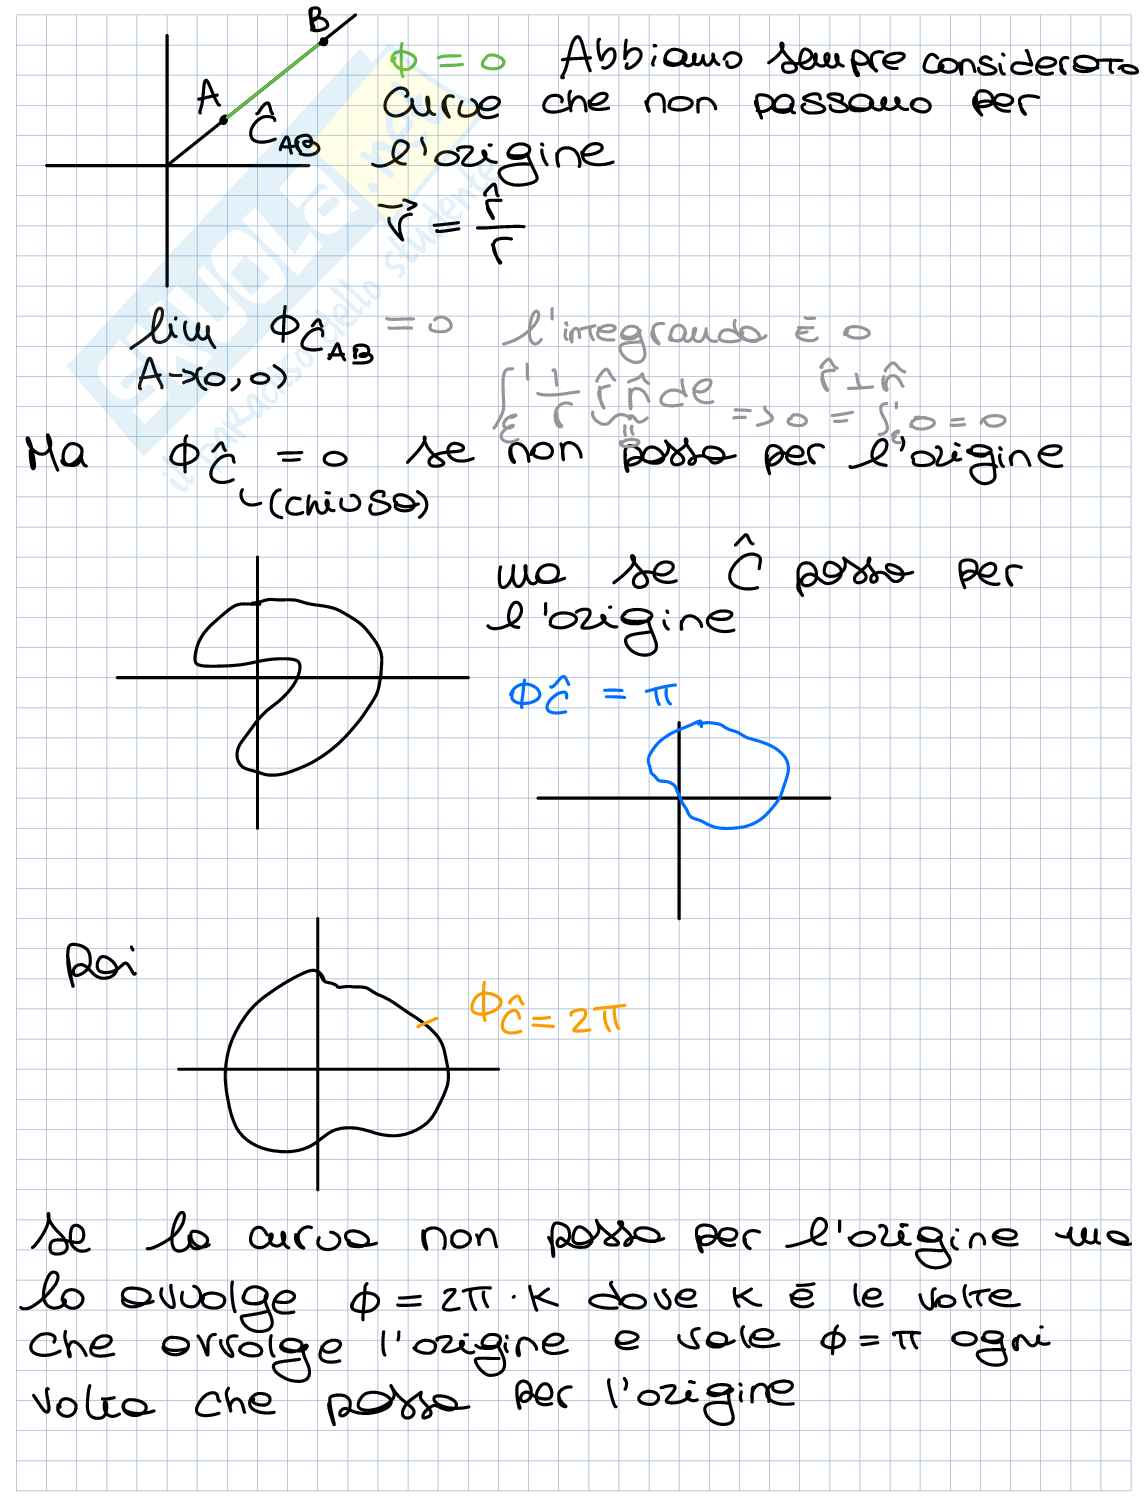 B
Φ = 0 Abbiamo sempre considerato
A
curve che non passano per
Ĉ_AB
l'origine
v⃗ = r̂/r
lim Φ_Ĉ_AB = 0 l'integrando è 0
A→(0,0)
∫_ε^1 1/r r̂ n̂ de r̂ ⊥ n̂
=> 0 = ∫_ε^1 0 = 0
Ma Φ_Ĉ = 0 se non passa per l'origine
(chiusa)
ma se Ĉ passa per
l'origine
Φ_Ĉ = π
Poi
Φ_Ĉ = 2π
se la curva non passa per l'origine ma
la avvolge Φ = 2π · K dove K è le volte
che avvolge l'origine e vale Φ = π ogni
volta che passa per l'origine